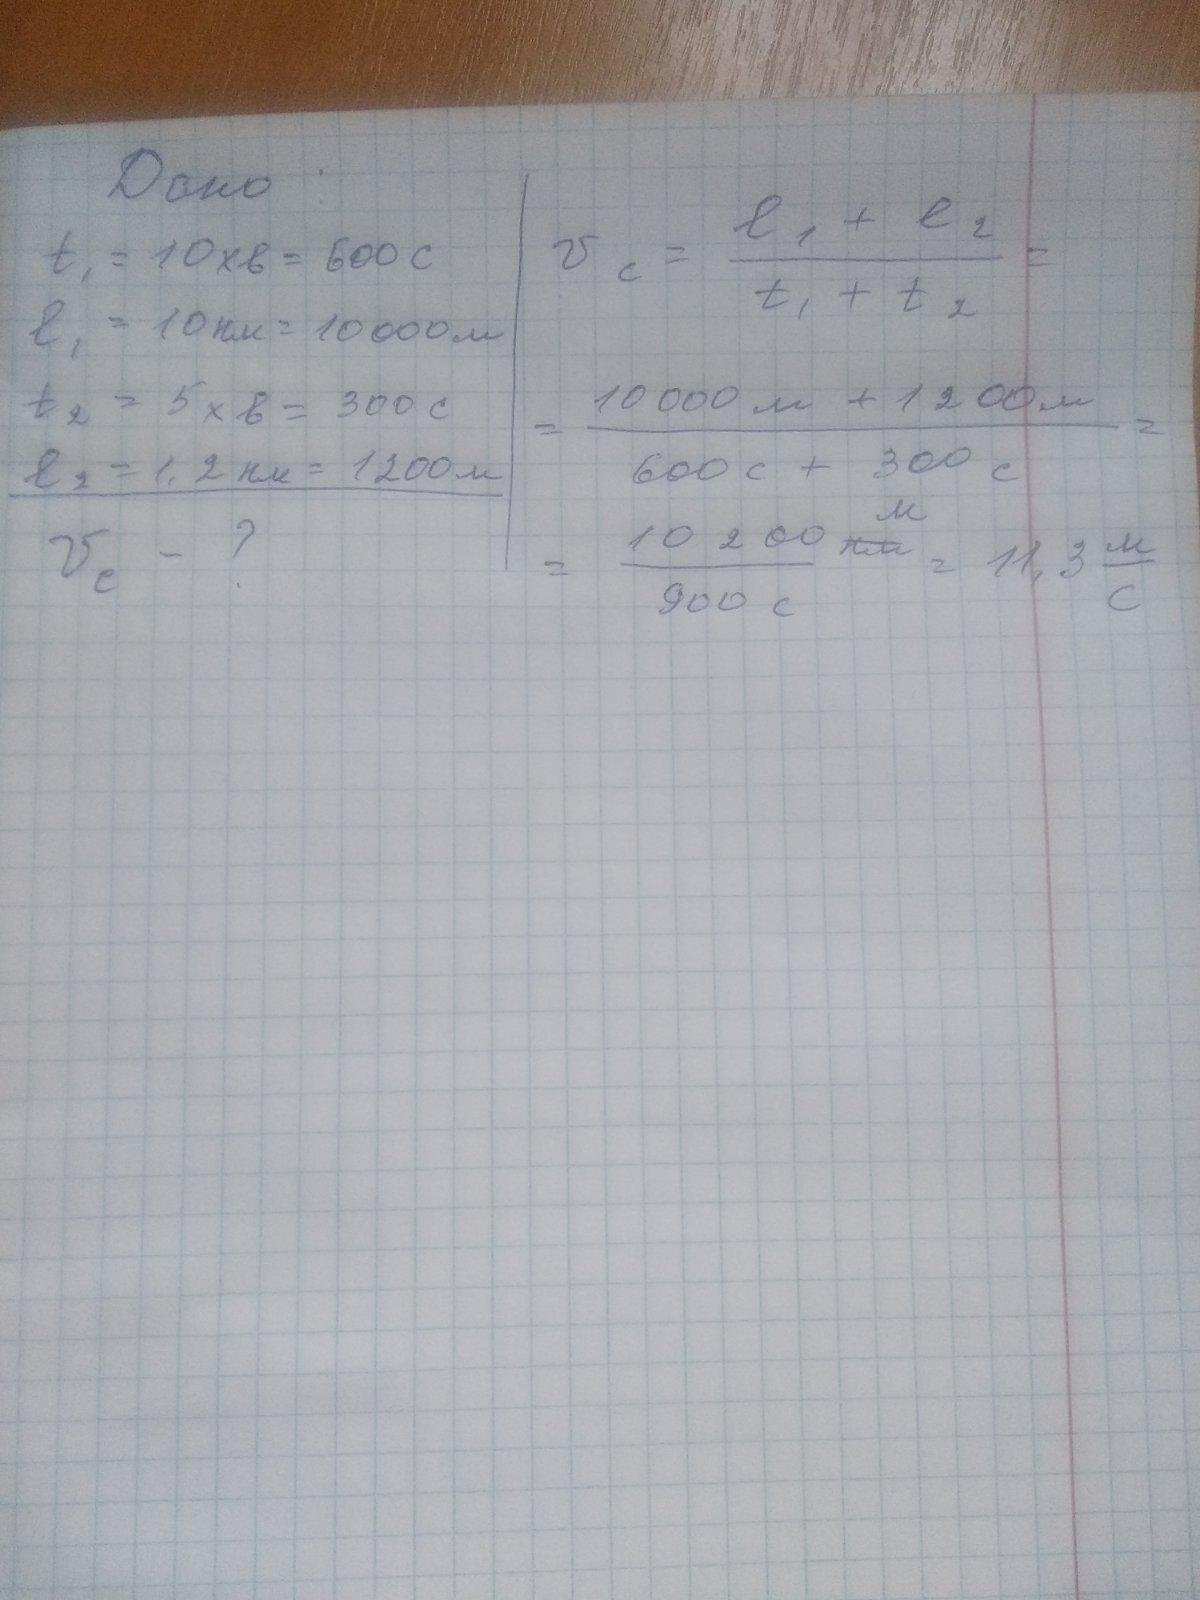 Дано:
t₁ = 10 хв = 600 с
l₁ = 10 км = 10 000 м
t₂ = 5 хв = 300 с
l₂ = 1,2 км = 1200 м
v_c - ?
v_c = (l₁ + l₂) / (t₁ + t₂) =
= (10 000 м + 1 200 м) / (600 с + 300 с) =
= 10 200 м / 900 с = 11,3 м/с